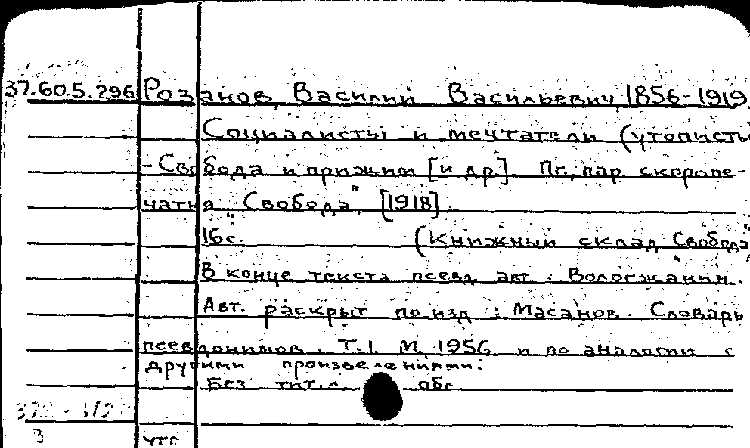 37.605.296 Розанов, Василий Васильевич, 1856-1919
Социалисты и мечтатели (утописты
- Свобода и прижим [и др]. Пг., пар. скоропе-
чатня "Свобода" [1918].
16 с. (Книжный склад "Свобода"
В конце текста псевд. авт.: Вологжанин.
Авт. раскрыт по изд.: Масанов. Словарь
псевдонимов. Т.1. М. 1956 и по аналогии с
другими произведениями.
Без тит. л. обл.
3 утг